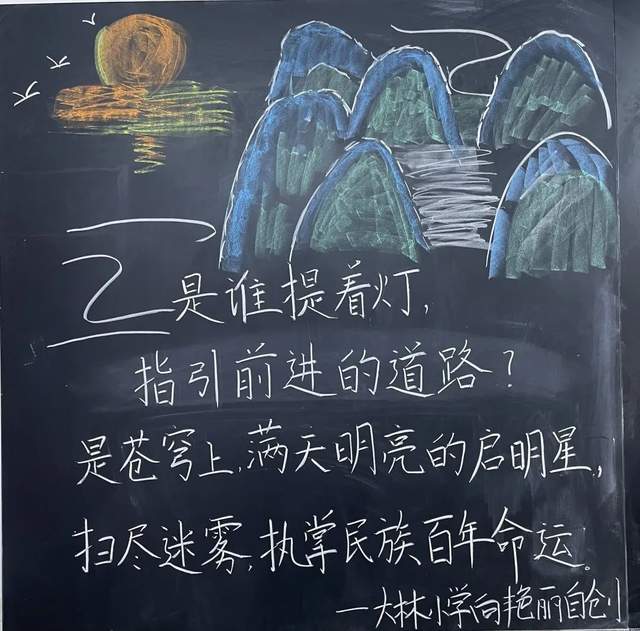 是谁提着灯,
指引前进的道路?
是苍穹上,满天明亮的启明星,
扫尽迷雾,执掌民族百年命运。
—大林小学向艳丽自创